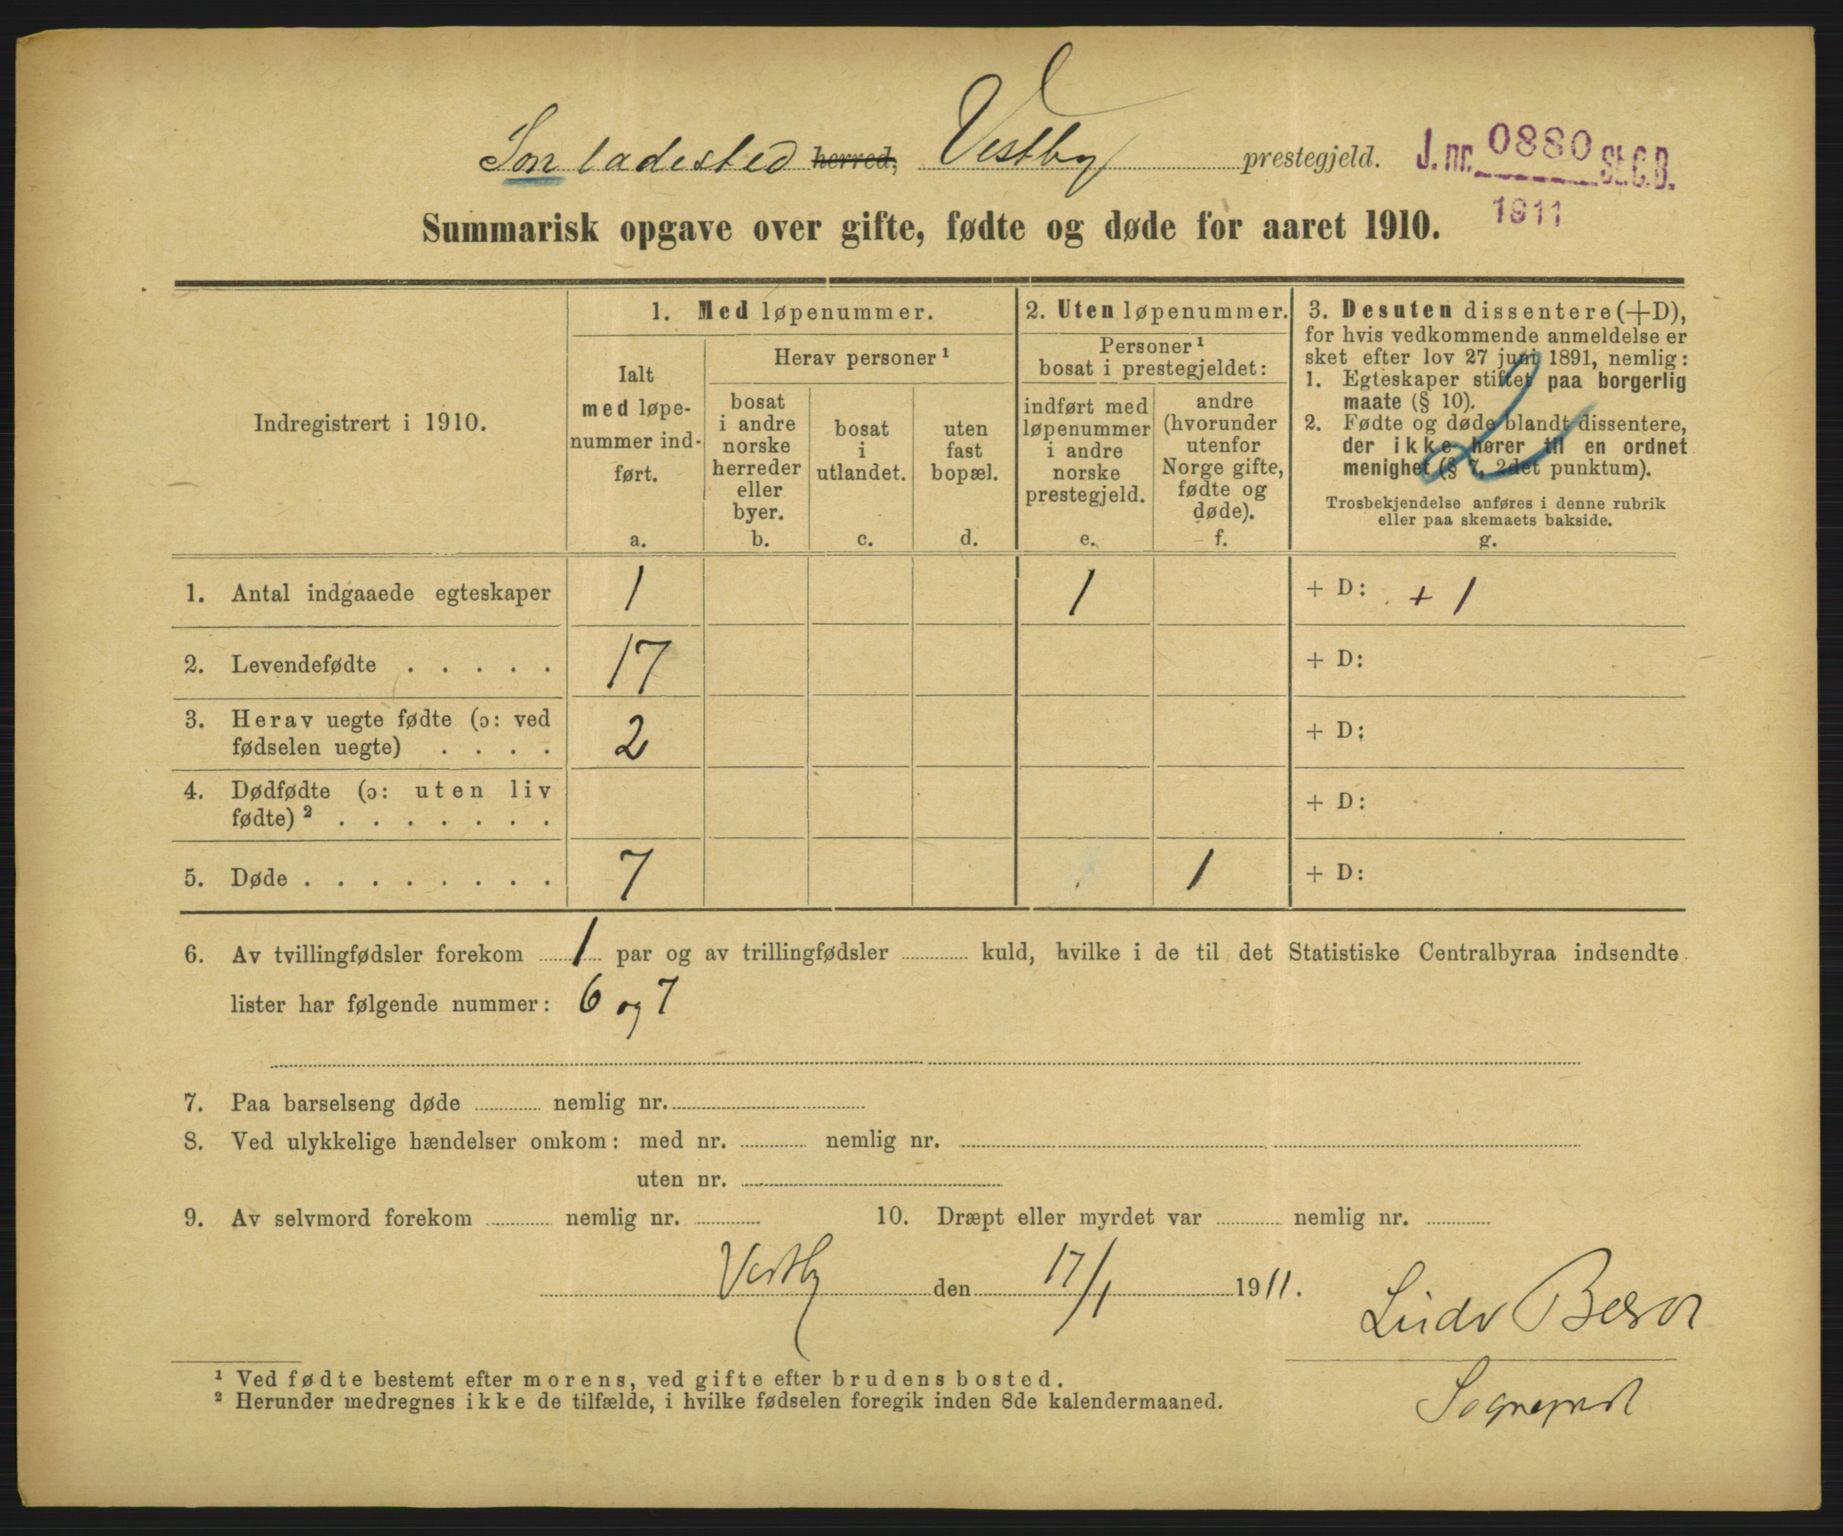 Son ladested herred, Vestby prestegjeld. J. nr. 0880 St.C.B.
1911
Summarisk opgave over gifte, fødte og døde for aaret 1910.
Indregistrert i 1910.
1. Med løpenummer.
Ialt
med løpe-
nummer ind-
ført.
a.
Herav personer ¹
bosat
i andre
norske
herreder
eller
byer.
b.
bosat
i
utlandet.
c.
uten
fast
bopæl.
d.
2. Uten løpenummer.
Personer ¹
bosat i prestegjeldet:
indført med
løpenummer
i andre
norske
prestegjeld.
e.
andre
(hvorunder
utenfor
Norge gifte,
fødte og
døde).
f.
3. Desuten dissentere (+D),
for hvis vedkommende anmeldelse er
sket efter lov 27 juni 1891, nemlig:
1. Egteskaper stiftet paa borgerlig
maate (§ 10).
2. Fødte og døde blandt dissentere,
der ikke hører til en ordnet
menighet (§ 7, 2det punktum).
Trosbekjendelse anføres i denne rubrik
eller paa skemaets bakside.
g.
2
1. Antal indgaaede egteskaper 1 1 + D: + 1
2. Levendefødte . . . . . 17 + D:
3. Herav uegte fødte (ɔ: ved
fødselen uegte) . . . . 2 + D:
4. Dødfødte (ɔ: uten liv
fødte) ² . . . . . . . + D:
5. Døde . . . . . . . . 7 1 + D:
6. Av tvillingfødsler forekom 1 par og av trillingfødsler kuld, hvilke i de til det Statistiske Centralbyraa indsendte
lister har følgende nummer: 6 og 7
7. Paa barselseng døde nemlig nr.
8. Ved ulykkelige hændelser omkom: med nr. nemlig nr.
uten nr.
9. Av selvmord forekom nemlig nr. 10. Dræpt eller myrdet var nemlig nr.
Vestby den 17/1 1911.
Ludv
Sogneprest
¹ Ved fødte bestemt efter morens, ved gifte efter brudens bosted.
² Herunder medregnes ikke de tilfælde, i hvilke fødselen foregik inden 8de kalendermaaned.